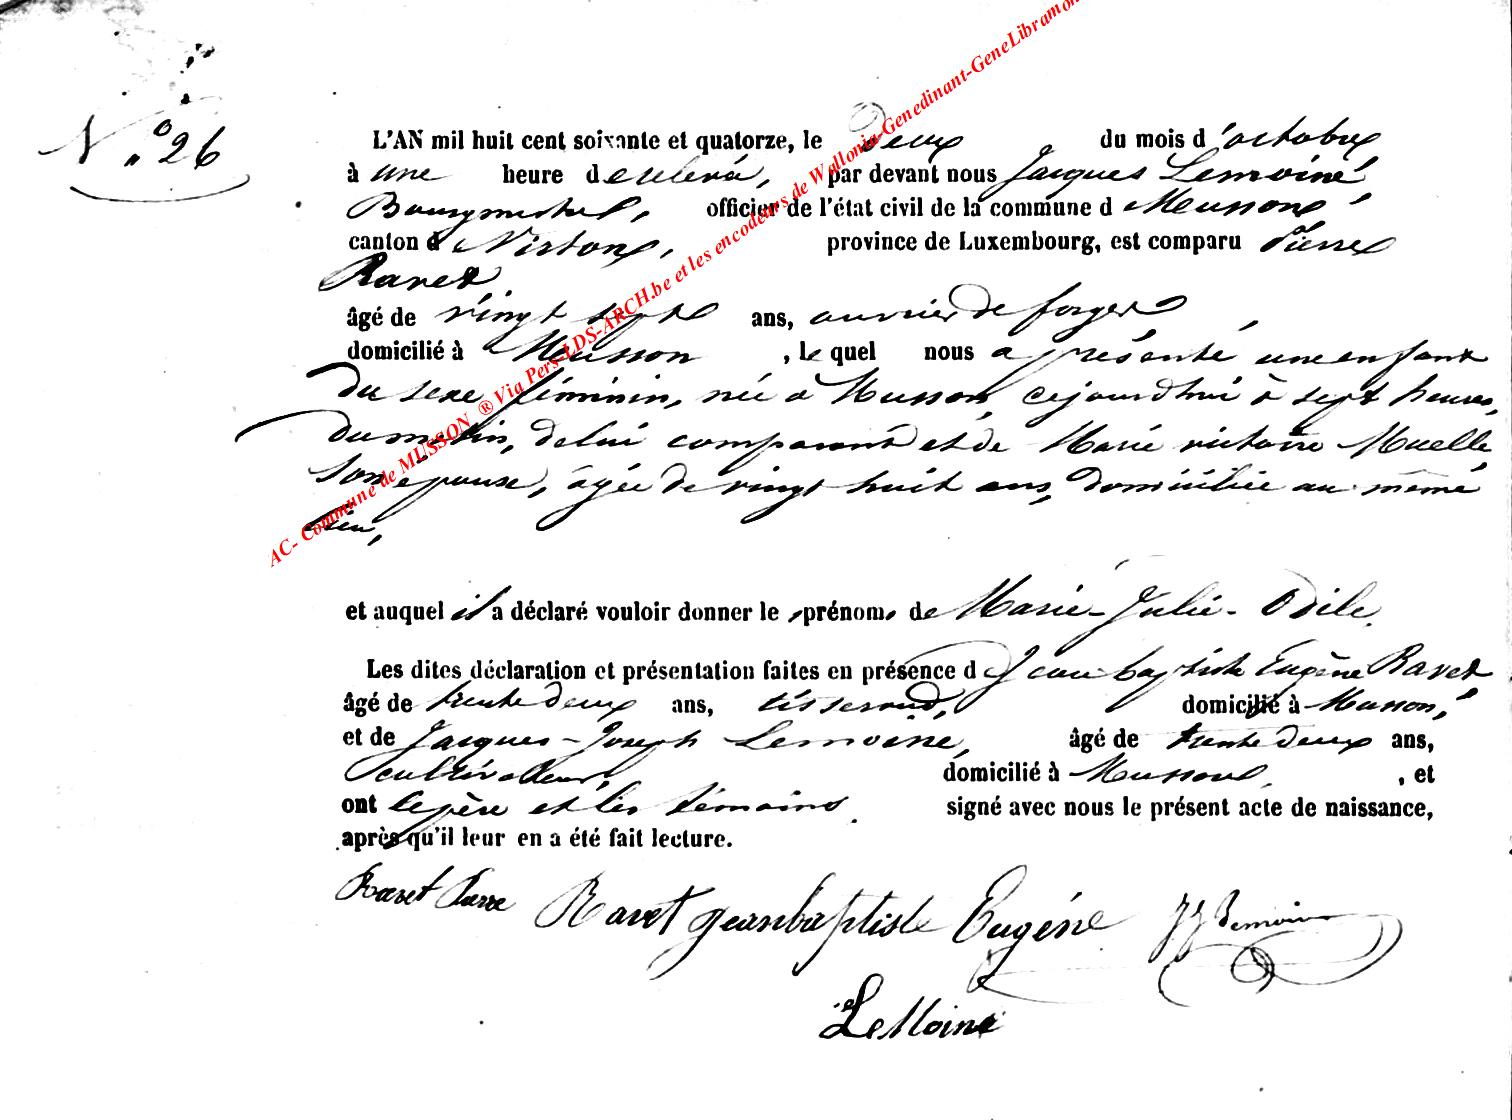 N° 26
L'AN mil huit cent soixante et quatorze, le Deux du mois d'octobre
à une heure de relevée, par devant nous Jacques Lemoine,
Bourgmestre, officier de l'état civil de la commune de Musson,
canton de Virton, province de Luxembourg, est comparu Pierre
Ravet
âgé de vingt sept ans, ouvrier de forges,
domicilié à Musson, lequel nous a présenté une enfant
du sexe féminin, née à Musson, cejourd'hui à sept heures,
du matin, de lui comparant et de Marie victoire Muelle
son épouse, âgée de vingt huit ans, domiciliée au même
lieu,
et auquel il a déclaré vouloir donner le prénom de Marie-Julie-Odile.
Les dites déclaration et présentation faites en présence de Jean baptiste Eugène Ravet
âgé de trente deux ans, tisserand, domicilié à Musson,
et de Jacques-Joseph Lemoine, âgé de trente deux ans,
cultivateur, domicilié à Musson, et
ont le père et les témoins signé avec nous le présent acte de naissance,
après qu'il leur en a été fait lecture.
Ravet Pierre Ravet jeanbaptiste Eugéne JJ Lemoine
LeMoine
AC- Commune de MUSSON ® Via Pers-LDS-ARCH.be et les encodeurs de Wallonia-Genedinant-GeneLibramon